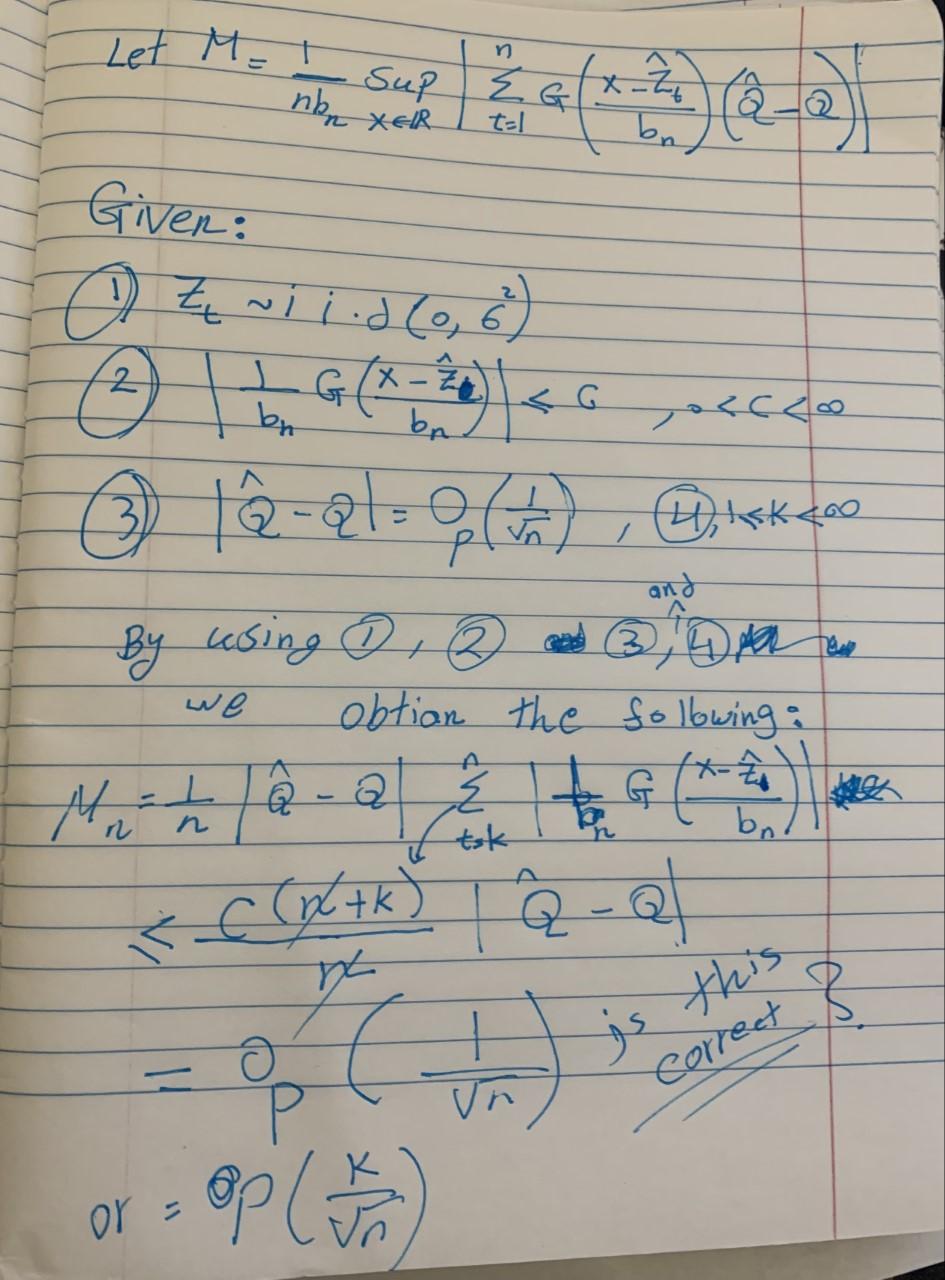 Let M = 1/(nb_n) Sup_{x∈ℝ} | Σ_{t=1}^{n} G((x - Ẑ_t)/b_n) (Q̂ - Q) |
Given:
① Z_t ~ i i.d (0, 6²)
② | 1/b_n G((x - ẑ)/b_n) | ≤ C , 0 < C < ∞
③ | Q̂ - Q | = O_p(1/√n) , ④, 1 ≤ k < ∞
By using ①, ② ③, and ④
we obtian the following:
M_n = 1/n | Q̂ - Q | Σ_{t=k}^{n} | 1/b_n G((x - ẑ)/b_n) |
≤ C(n+k)/n | Q̂ - Q |
= O_p(1/√n) is this correct ?
or = Op(K/√n)